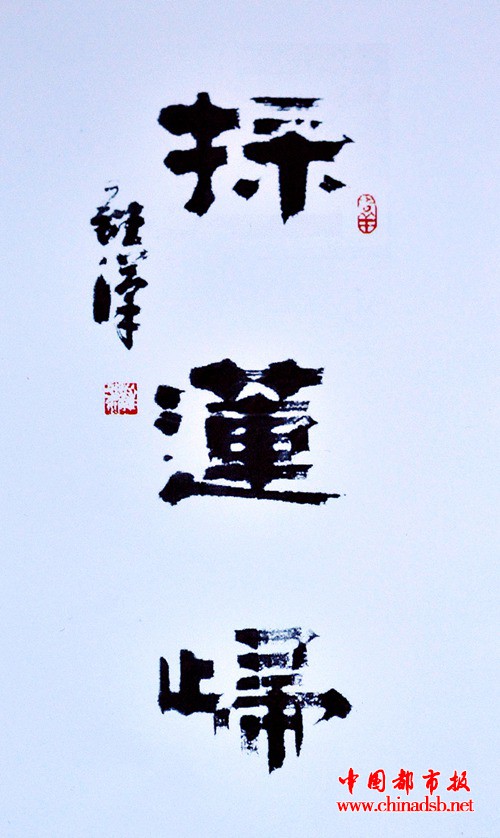 採
蓮
歸
中国都市报
www.chinadsb.net